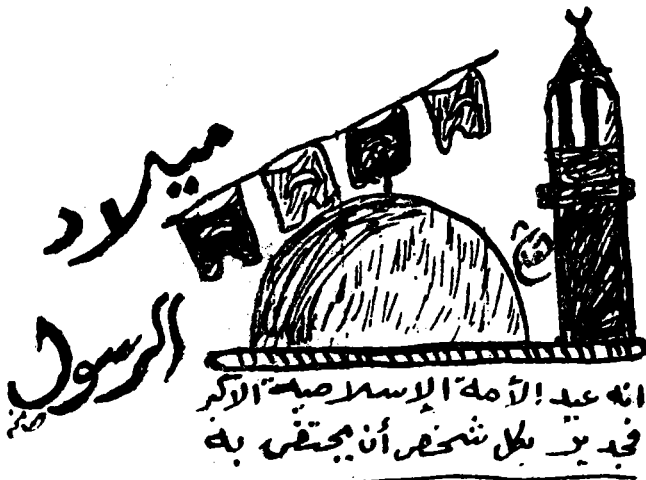 ميلاد
الرسول
انه عيد الأمة الإسلامية الأكبر
فجدير بكل شخص أن يحتفي به